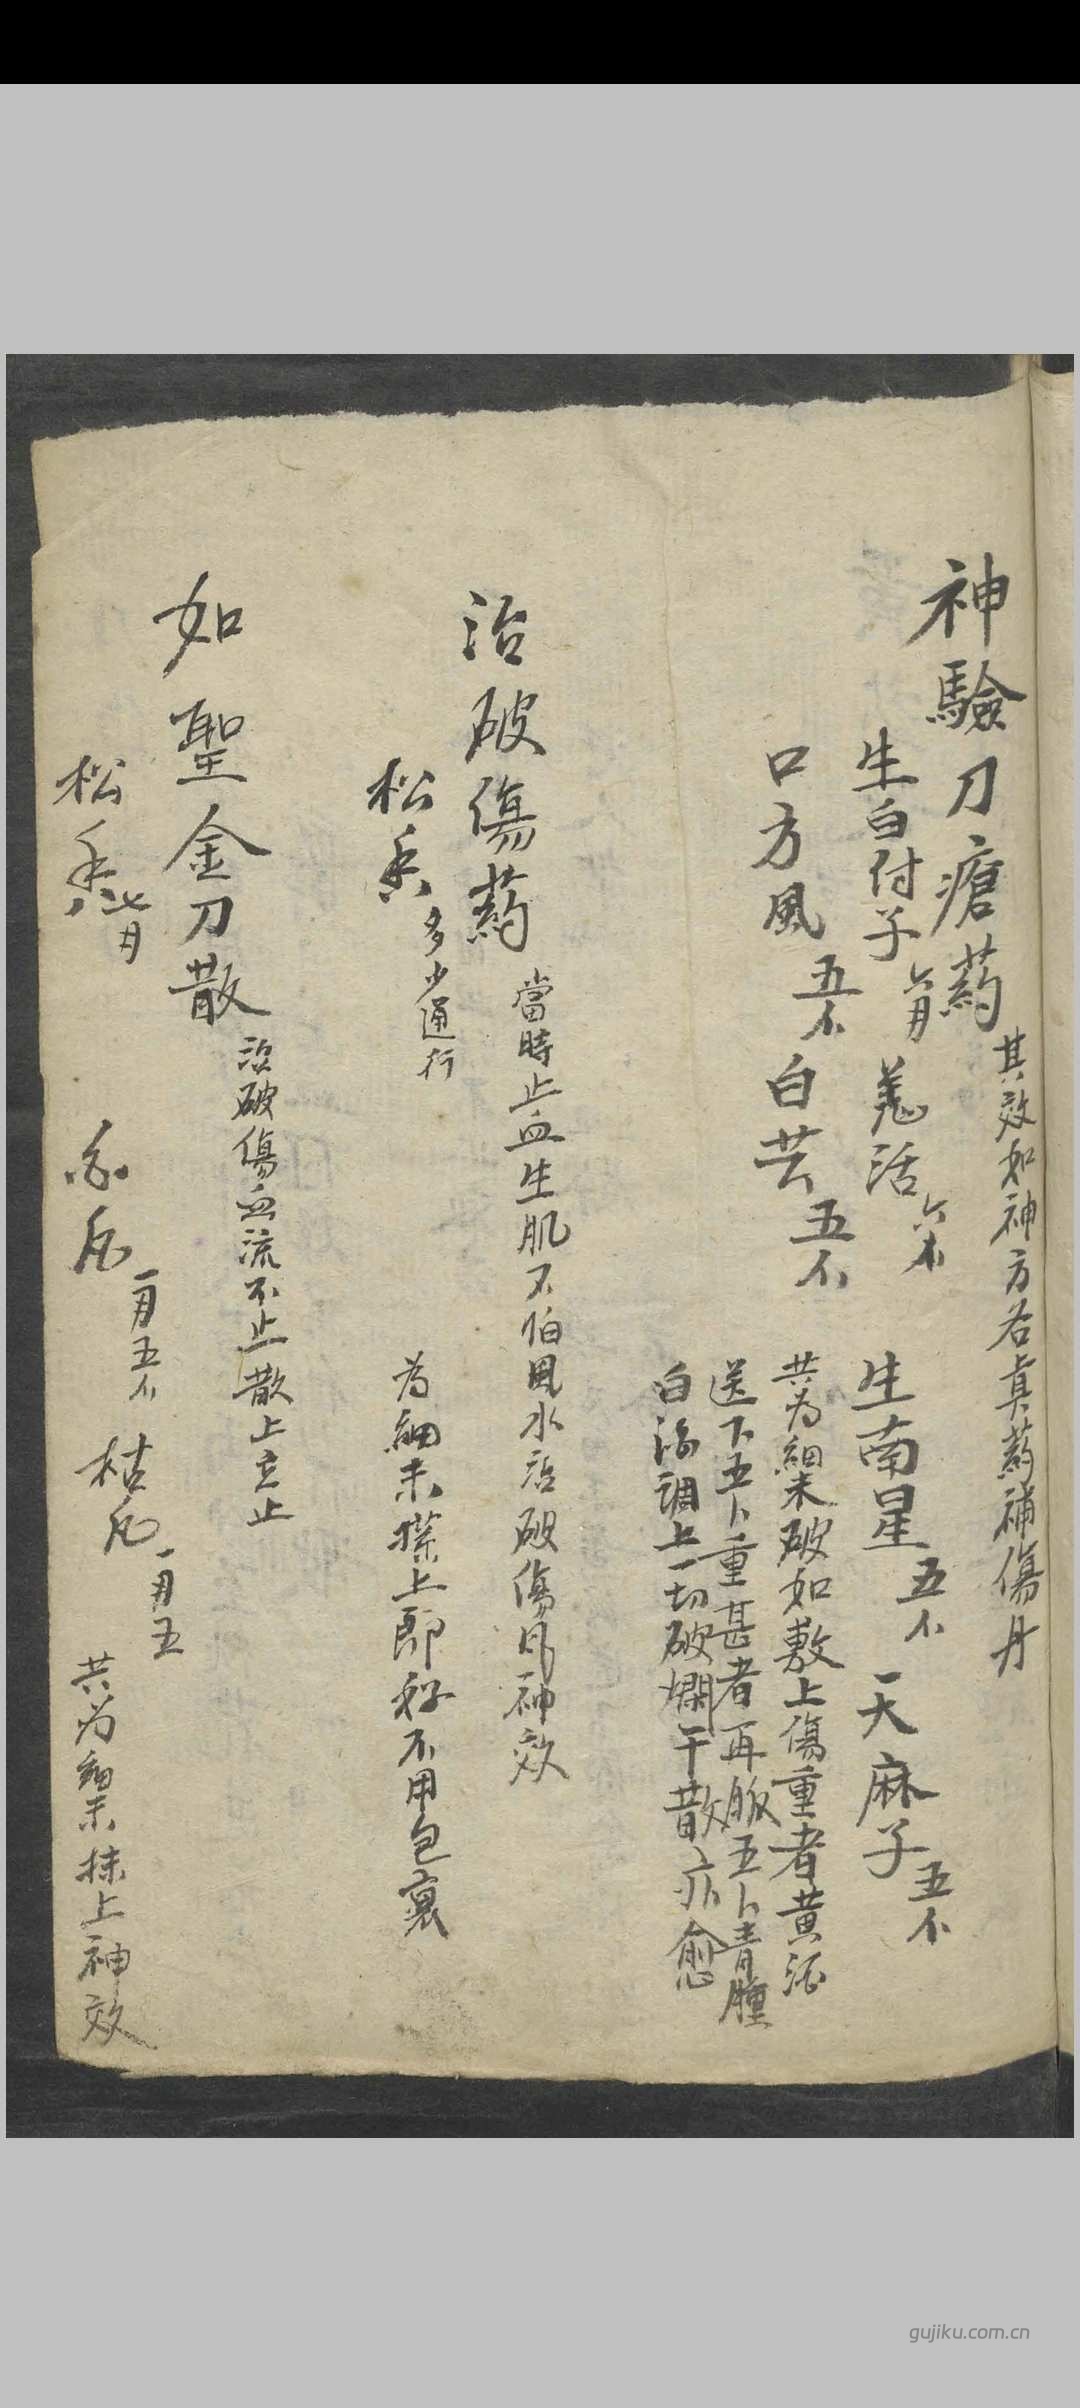 神驗刀瘡药 其效如神方名真药補傷丹
生白付子 羌活 生南星 五个 天麻子 五个
口方風 五个 白芷 五个
共为細末破如敷上傷重者黄酒
送下五卜重甚者再服五卜青腫
白酒調上一切破爛干散亦愈
治破傷药 當時止血生肌不怕風水治破傷风神效
松香 多少通行 为細末搽上即好不用包裹
如聖金刀散 治破傷血流不止散上立止
松香 白凡 五个 枯凡 共为細末抹上神效
gujiku.com.cn